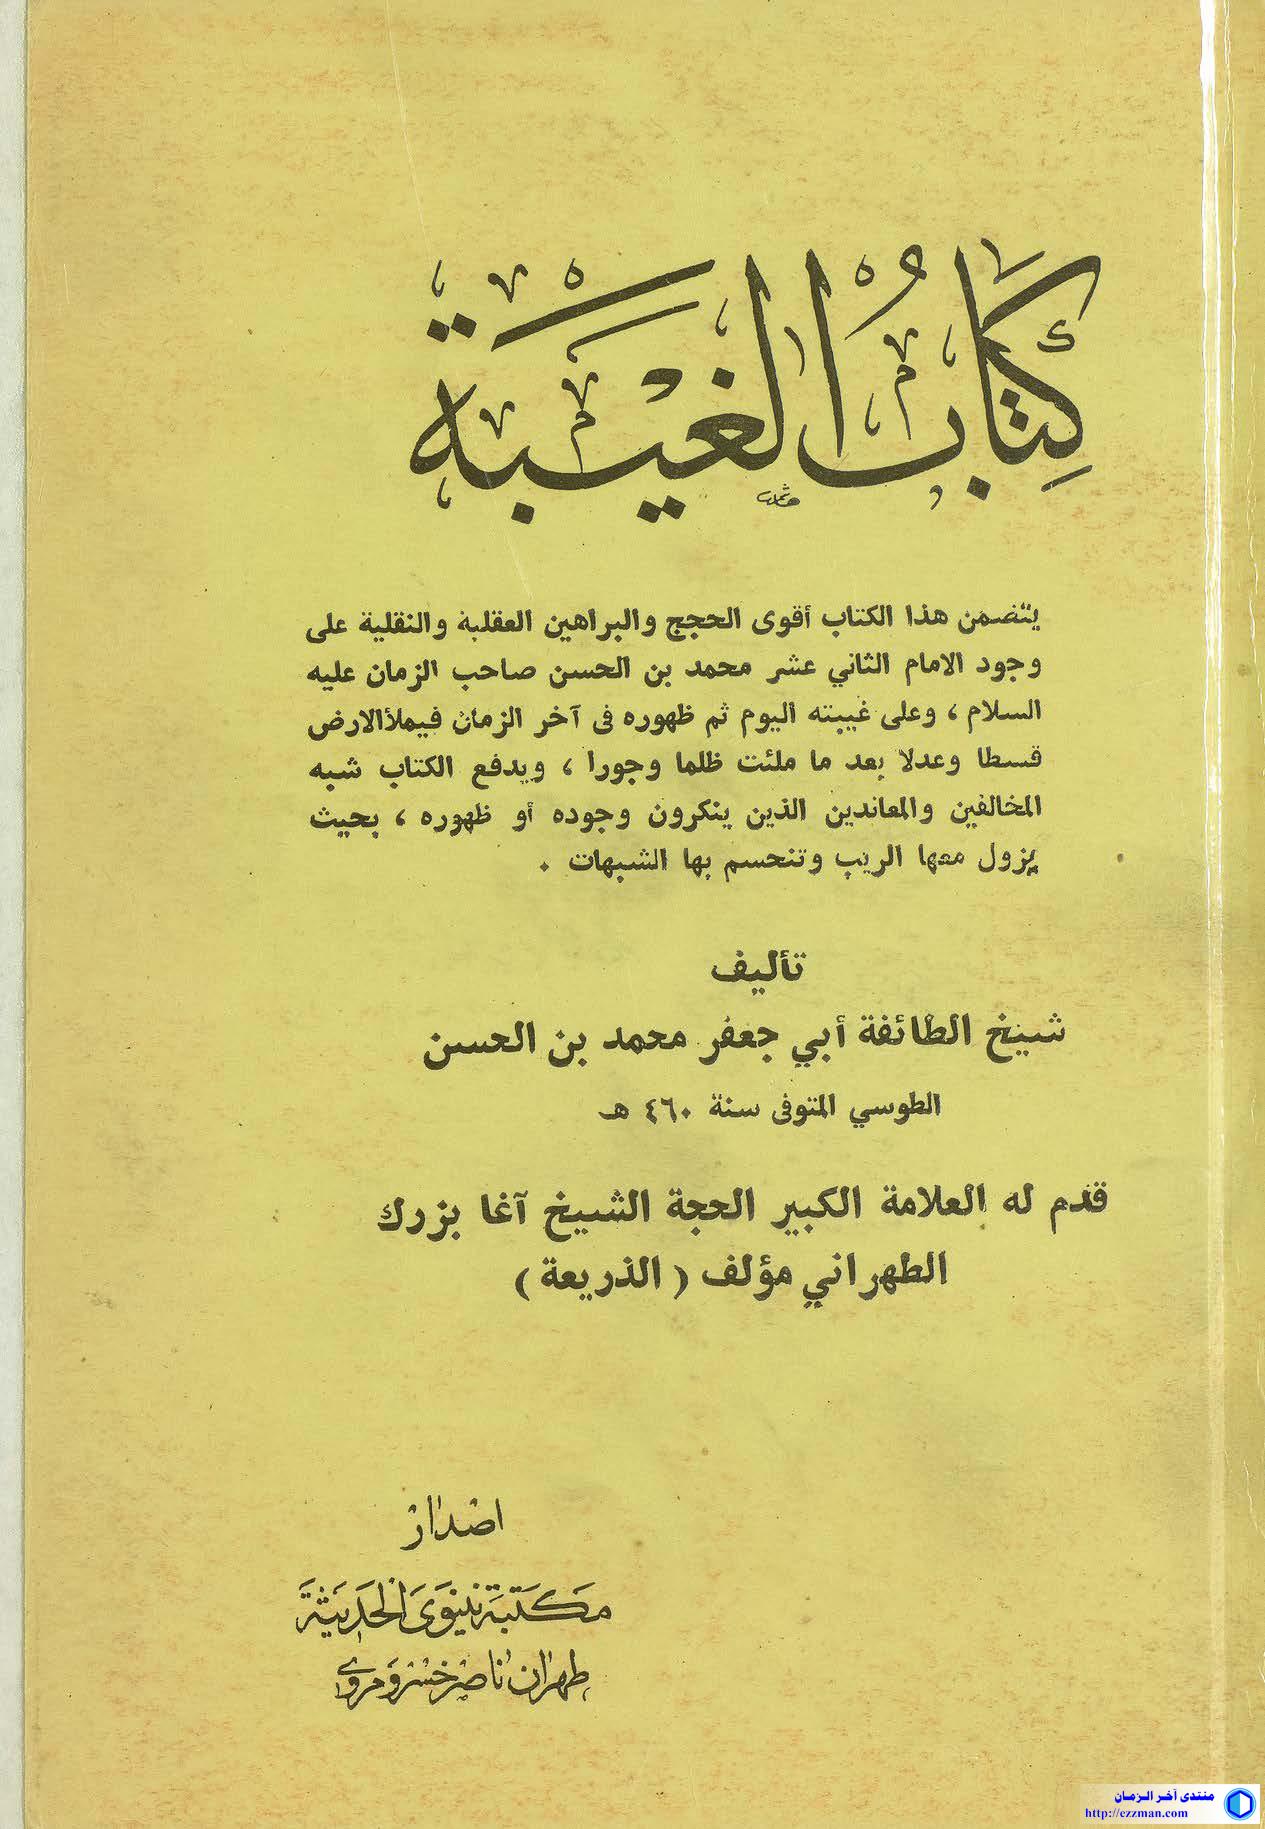 كِتَابُ الغَيْبَة
يتضمن هذا الكتاب أقوى الحجج والبراهين العقلية والنقلية على
وجود الامام الثاني عشر محمد بن الحسن صاحب الزمان عليه
السلام ، وعلى غيبته اليوم ثم ظهوره فى آخر الزمان فيملأالارض
قسطا وعدلا بعد ما ملئت ظلما وجورا ، ويدفع الكتاب شبه
المخالفين والمعاندين الذين ينكرون وجوده أو ظهوره ، بحيث
يزول معها الريب وتنحسم بها الشبهات .
تأليف
شيخ الطائفة أبي جعفر محمد بن الحسن
الطوسي المتوفى سنة ٤٦٠ هـ
قدم له العلامة الكبير الحجة الشيخ آغا بزرك
الطهراني مؤلف ( الذريعة )
اصدار
مكتبة نينوى الحديثة
طهران ناصر خسرو مروي
منتدى آخر الزمان
http://ezzman.com